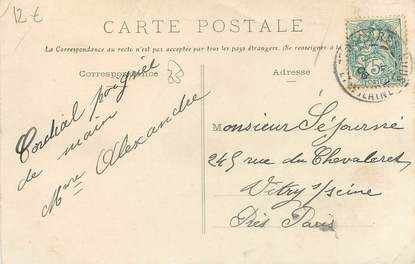 12 €
CARTE POSTALE
La Correspondance au recto n'est pas acceptée par tous les pays étrangers. (Se renseigner à la
Correspondance
Adresse
Cordial poignée
de main
Mme Alexandre
Monsieur Séjourné
245 rue du Chevaleret
Vitry s/seine
Près Paris
5